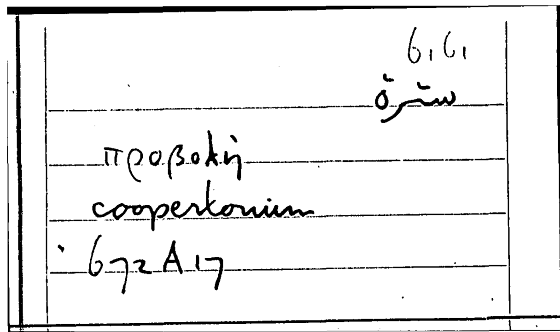 6,6,
سترة
προβολή
coopertorium
672 A 17